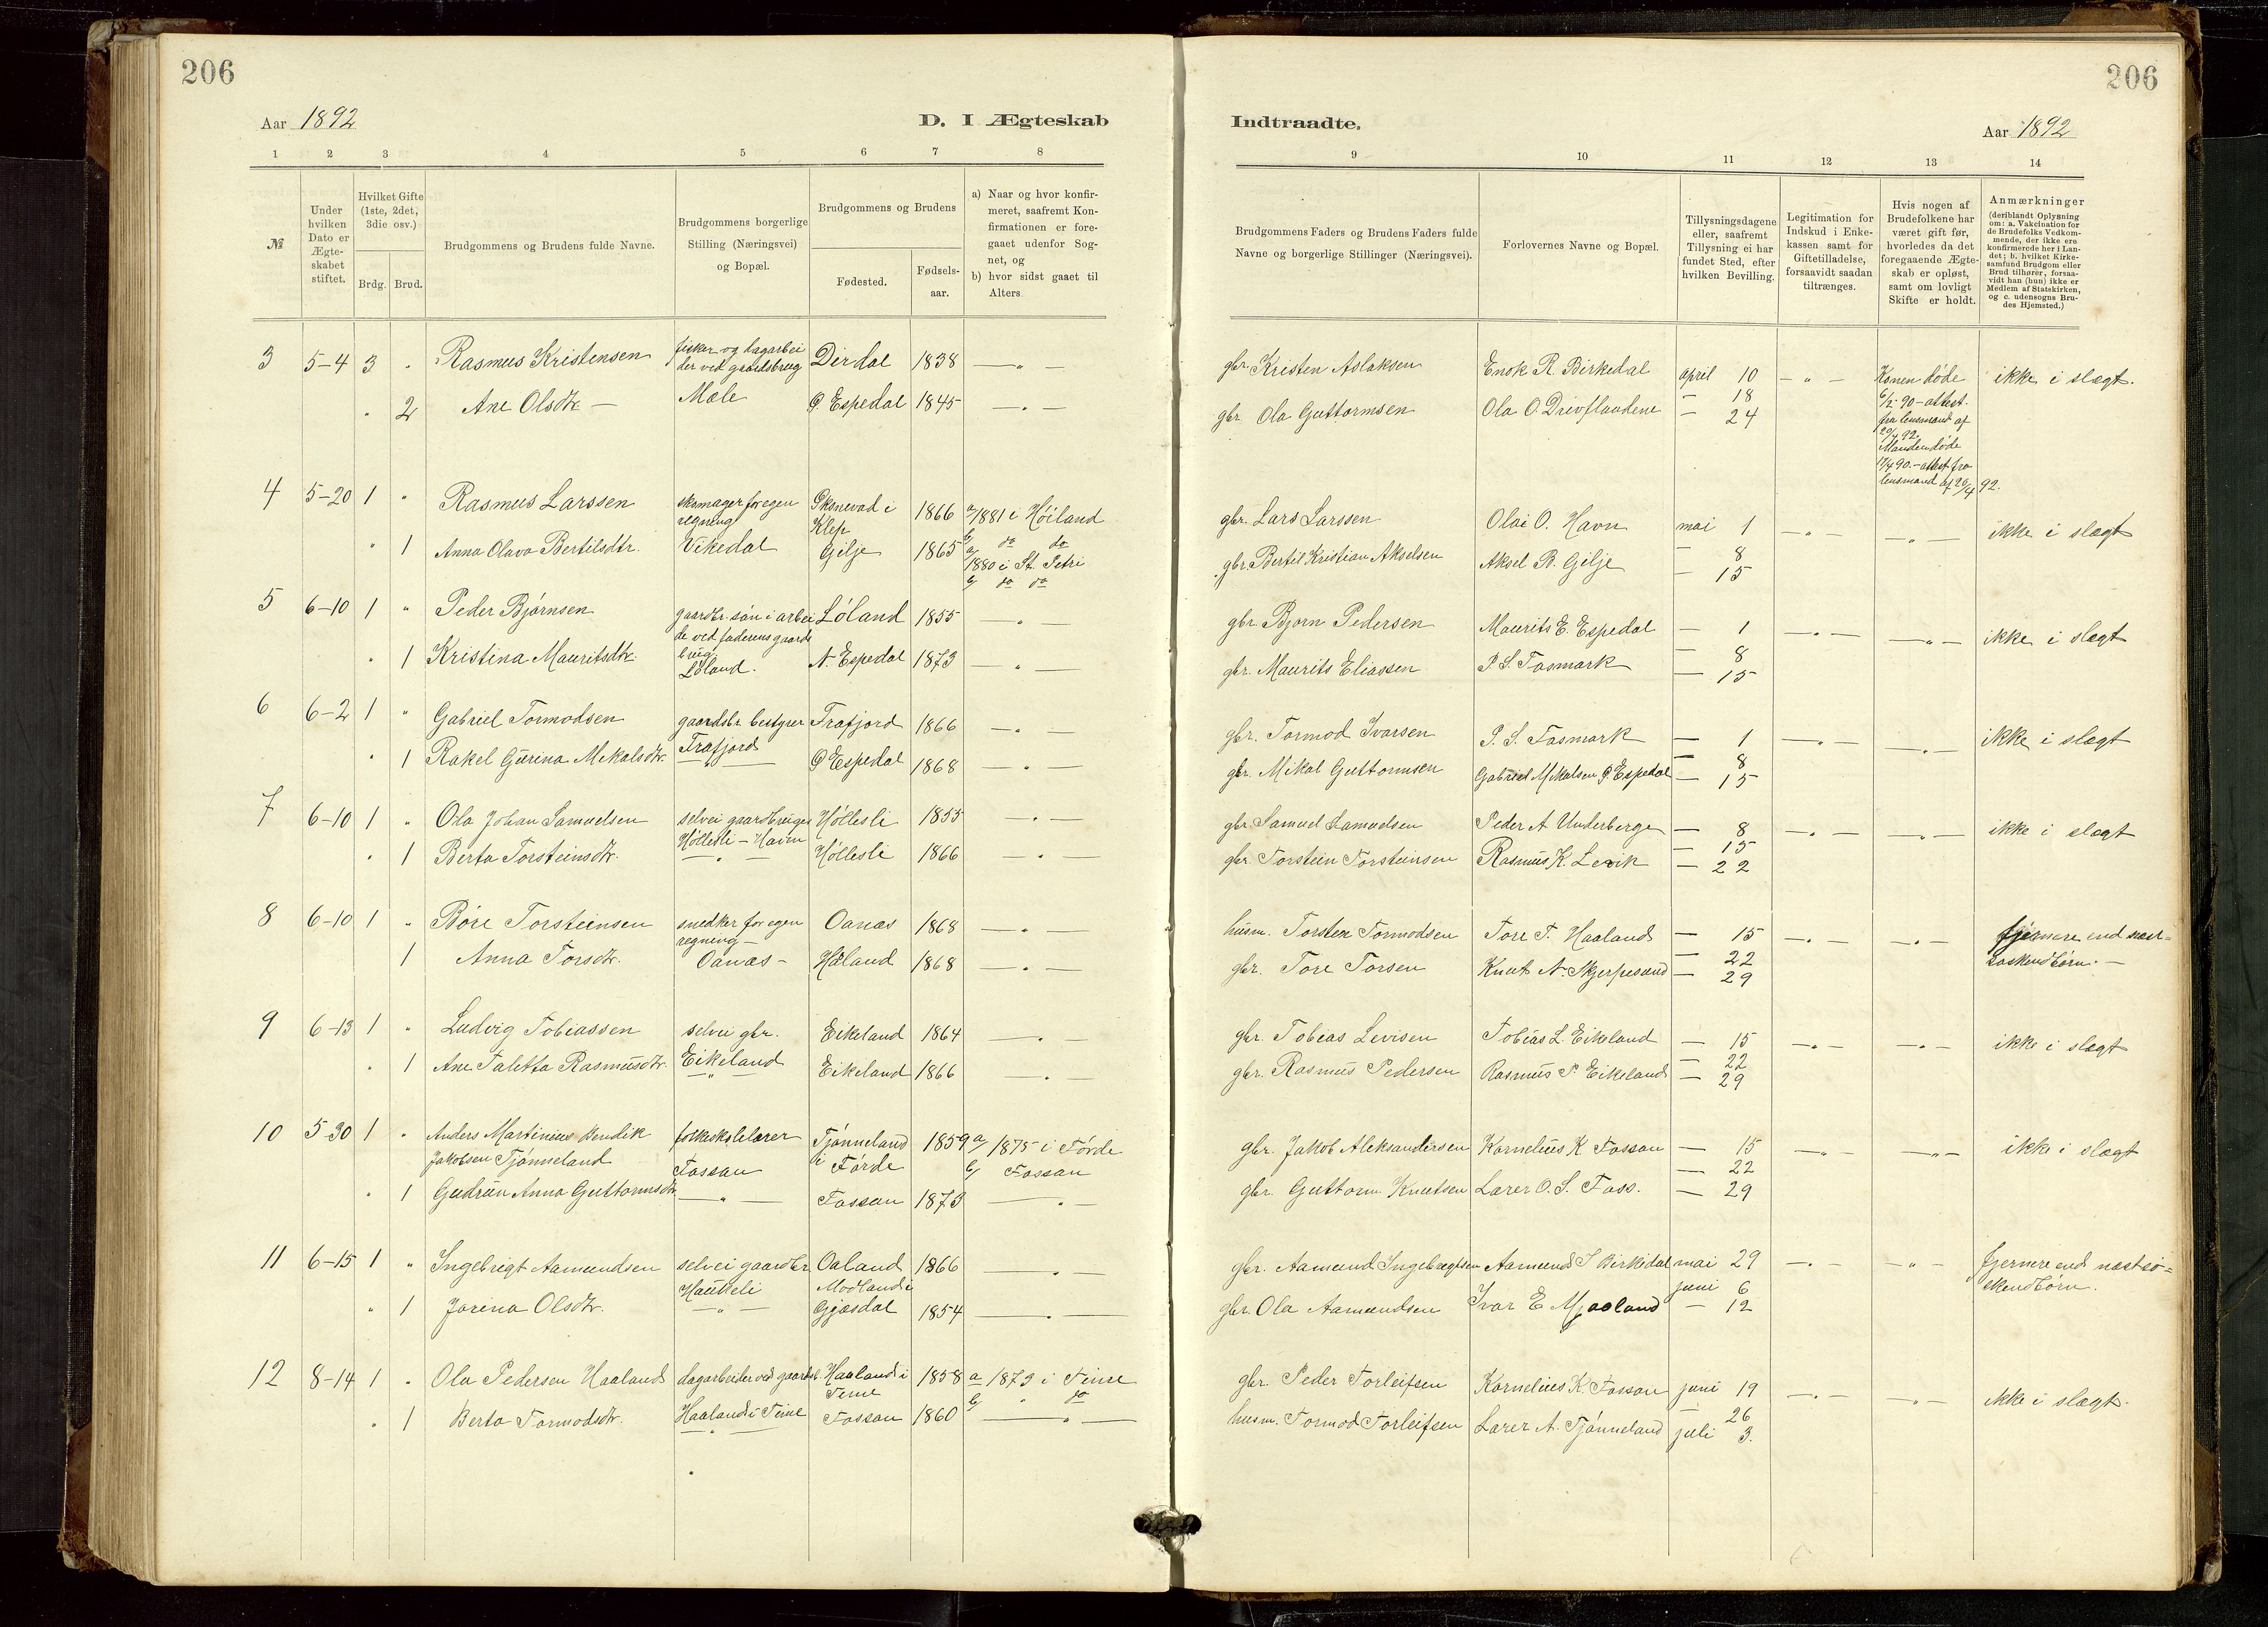 206
206
Aar 1892
D. I Ægteskab
Indtraadte.
Aar 1892
1 2 3 4 5 6 7 8
9 10 11 12 13 14
№
Under hvilken Dato er Ægteskabet stiftet.
Hvilket Gifte (1ste, 2det, 3die osv.)
Brdg. Brud.
Brudgommens og Brudens fulde Navne.
Brudgommens borgerlige Stilling (Næringsvei) og Bopæl.
Brudgommens og Brudens
Fødested.
Fødselsaar.
a) Naar og hvor konfirmeret, saafremt Konfirmationen er foregaaet udenfor Sognet, og
b) hvor sidst gaaet til Alters.
Brudgommens Faders og Brudens Faders fulde Navne og borgerlige Stillinger (Næringsvei).
Forlovernes Navne og Bopæl.
Tillysningsdagene eller, saafremt Tillysning ei har fundet Sted, efter hvilken Bevilling.
Legitimation for Indskud i Enkekassen samt for Giftetilladelse, forsaavidt saadan tiltrænges.
Hvis nogen af Brudefolkene har været gift før, hvorledes da det foregaaende Ægteskab er opløst, samt om lovligt Skifte er holdt.
Anmærkninger
(deriblandt Oplysning om: a. Vakcination for de Brudefolks Vedkommende, der ikke ere konfirmerede her i Landet; b. hvilket Kirkesamfund Brudgom eller Brud tilhører, forsaavidt han (hun) ikke er Medlem af Statskirken, og c. udensogns Brudes Hjemsted.)
3 5-4 3 " Rasmus Kristensen fisker og dagarbeider ved gaardsbrug Dirdal 1838 — " —
" 2 Ane Olsdtr. — Mæle Ø. Espedal 1845 — " —
gbr. Kristen Aslaksen Enok R. Birkedal april 10 — " — Konen døde 6/2 90 — attest fra lensmand af 20/4 92. ikke i slægt.
gbr. Ola Guttormsen Ola O. Drivflaadene — 18 — 24 Manden døde 17/4 90. — attest fra lensmand af 20/4 92.
4 5-20 1 " Rasmus Larssen skomager for egen regning i Klep 1866 a/ 1881 i Höiland b/ do do
" 1 Anna Olava Bertilsdtr. Vikedal Gilje 1865 a/ 1880 i St. Petri b/ do do
gbr. Lars Larssen Olai O. Havn mai 1 — " — — " — ikke i slægt
gbr. Bertil Kristian Akselsen Aksel B. Gilje — 8 — 15
5 6-10 1 " Peder Björnsen gaardbr. sön i arbeide ved faderens gaardsbrug Löland 1855 — " —
" 1 Kristina Mauritsdtr. Löland. N. Espedal 1873 — " —
gbr. Bjorn Pedersen Maurits E. Espedal — 1 — " — — " — ikke i slægt
gbr. Maurits Eliassen P. S. Fasmark — 8 — 15
6 6-2 1 " Gabriel Tormodsen gaardsbr. bestyrer Frafjord 1866 — " —
" 1 Rakel Gurina Mikalsdtr. Frafjord Ø Espedal 1868 — " —
gbr. Tormod Ivarsen P. S. Fasmark — 1 — " — — " — ikke i slægt
gbr. Mikal Guttormsen Gabriel Mikalsen Ø. Espedal — 8 — 15
7 6-10 1 " Ola Johan Samuelsen selvei gaardbruger Höllesli 1855 — " —
" 1 Berta Torsteinsdtr. Höllesli — Havn — " — Höllesli 1866 — " —
gbr. Samuel Samuelsen Peder A Underberge — 8 — " — — " — ikke i slægt
gbr. Torstein Torsteinsen Rasmus K. Levik — 15 — 22
8 6-10 1 " Böre Torsteinsen snedker for egen regning — Oanæs 1868 — " —
1 Anna Torsdtr. Oanæs — Håland 1868 — " —
husm. Torsten Tormodsen Tore T. Haaland — 15 — " — — " — fjernere end næst-
gbr. Tore Torsen Knut A. Skjerpesand — 22 — 29 søskendbörn. —
9 6-13 1 " Ludvig Tobiassen selvei gbr. Eikeland 1864 — " —
" 1 Ane Taletta Rasmusdtr. Eikeland — " — Eikeland 1866 — " —
gbr. Tobias Levisen Tobias L. Eikeland — 15 — " — — " — ikke i slægt
gbr. Rasmus Pedersen Rasmus P. Eikeland — 22 — 29
10 5-30 1 " Anders Martinius Bendik Jakobsen Tjönneland folkeskolelærer Fossan Tjönneland i Förde 1859 a/ 1875 i Förde b/ Fossan
" 1 Gudrun Anna Guttormsdtr. — " — Fossan 1873 — " —
gbr. Jakob Aleksandersen Kornelius K Fossan — 15 — " — — " — ikke i slægt
gbr. Guttorm Knutsen Lærer O. S. Foss. — 22 — 29
11 6-15 1 " Ingebrigt Aamundsen selvei gaardbr Haukeli Oaland 1866 — " —
" 1 Jorina Olsdtr. — " — Modland i Gjesdal 1854 — " —
gbr. Aamund Ingebregtsen Aamund I Birkedal mai 29 — " — " — fjernere end næstsö-
gbr. Ola Aamundsen Ivar E Mjaaland juni 6 — 12 skendbörn.
12 8-14 1 " Ola Pedersen Haaland dagarbeider ved gaardsb. Haaland i Time 1858 a 1873 i Time b/ " do
" 1 Berta Tormodsdtr. Haaland i Time — " — Fossan 1860 — " —
gbr. Peder Torleifsen Kornelius K. Fossan juni 19 — " — — " — ikke i slægt.
husm. Tormod Torleifsen Lærer A. Tjönneland — 26 juli 3.